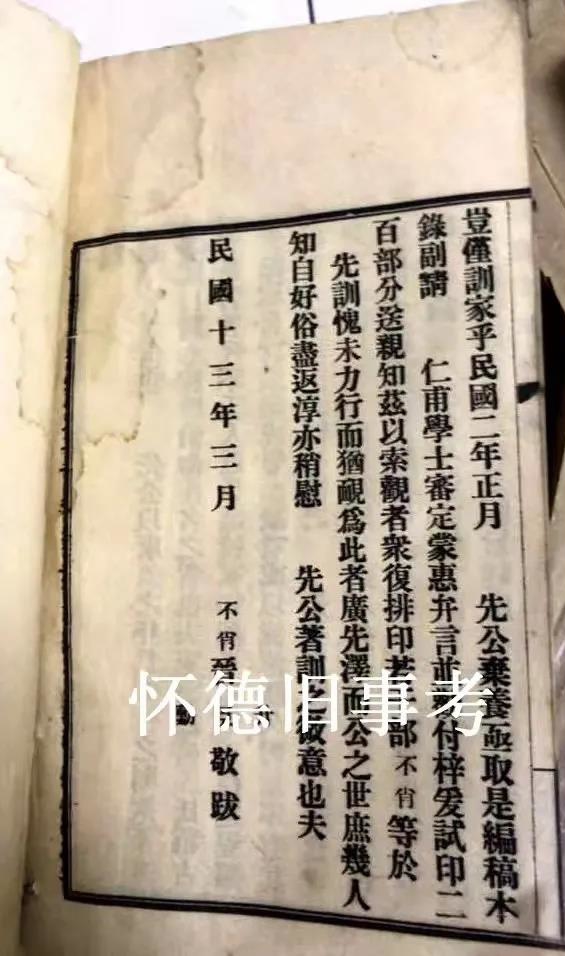 豈僅訓家乎民國二年正月　先公棄養亟取是編稿本
錄副請　仁甫學士審定蒙惠弁言並付梓爰試印二
百部分送親知茲以索觀者衆復排印若部不肖等於
先訓愧未力行而猶靦爲此者廣先澤而公之世庶幾人
知白好俗盡返淳亦稍慰　先公著訓之微意也夫
民國十三年三月　不肖晉　敬跋
怀德旧事考